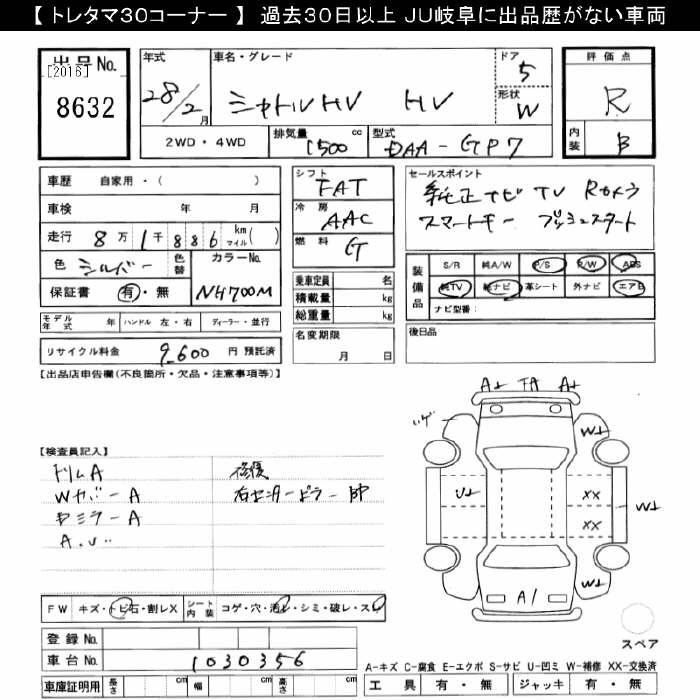 【 トレタマ30コーナー 】 過去30日以上 JU岐阜に出品歴がない車両
出品No.
[2016]
8632
年式
28/2月
車名・グレード
シャトルHV HV
ドア
5
形状
W
評価点
R
内装
B
2WD・4WD
排気量 1500 cc
型式 DAA-GP7
車歴 自家用・( )
車検 年 月
走行 8万1千886 km マイル( )
色 シルバー 色替
カラーNo.
NH700M
保証書 有・無
シフト FAT
冷房 AAC
燃料 G
乗車定員 名
積載量 kg
総重量 kg
セールスポイント
純正ナビ TV Rカメラ
スマートキー プッシュスタート
装備品
S/R 純A/W P/S P/W ABS
純TV 純ナビ 革シート 外ナビ エアB
ナビ型番:
モデル年式 年 ハンドル 左・右 ディーラー・並行
リサイクル料金 9,600 円 預託済
名変期限
月 日
後日品
【出品店申告欄(不良箇所・欠品・注意事項等)】
【検査員記入】
トリムA
Wカバー A
ドミラー A
A.U
修復
右センターピラー BP
A1 TA A1
W1
U1
XX
XX
W1
W1
A1
FW キズ・トビ石・割レX
シート内装 コゲ・穴・汚レ・シミ・破レ・スレ
登録No.
車台No. 1030356
車庫証明用 長さ cm 幅 cm 高さ cm
スペア
A-キズ C-腐食 E-エクボ S-サビ U-凹ミ W-補修 XX-交換済
工具 有・無 ジャッキ 有・無